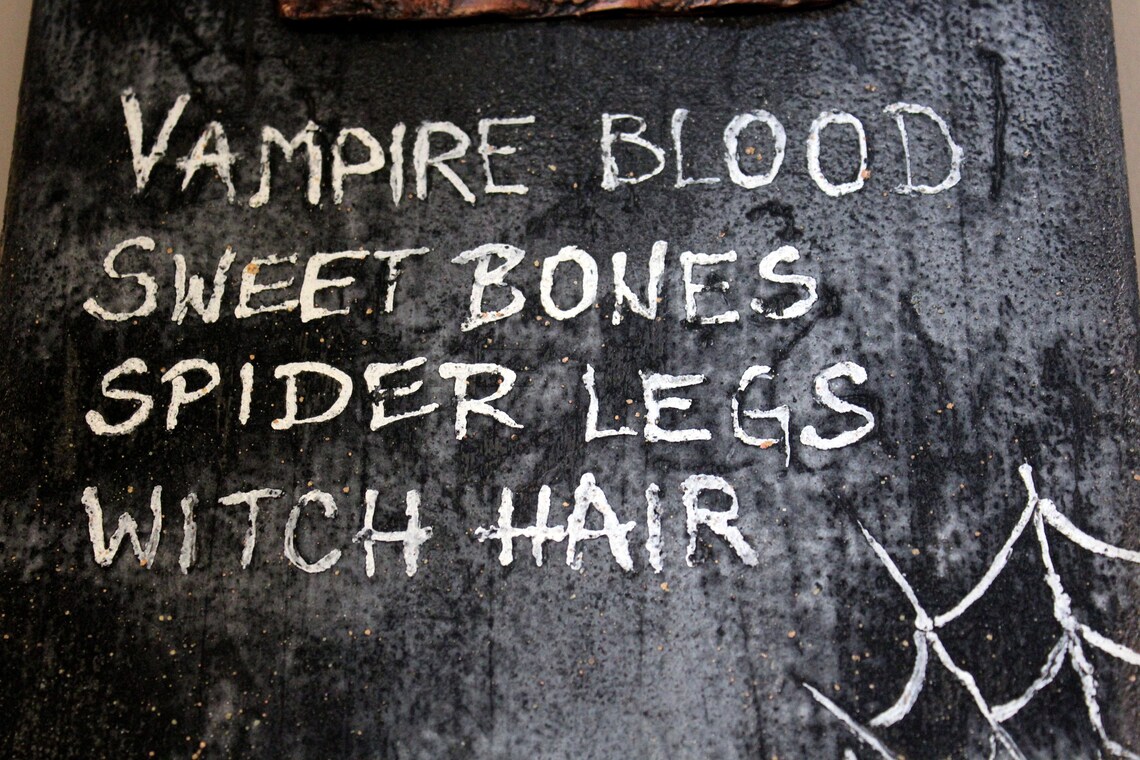 VAMPIRE BLOOD
SWEET BONES
SPIDER LEGS
WITCH HAIR